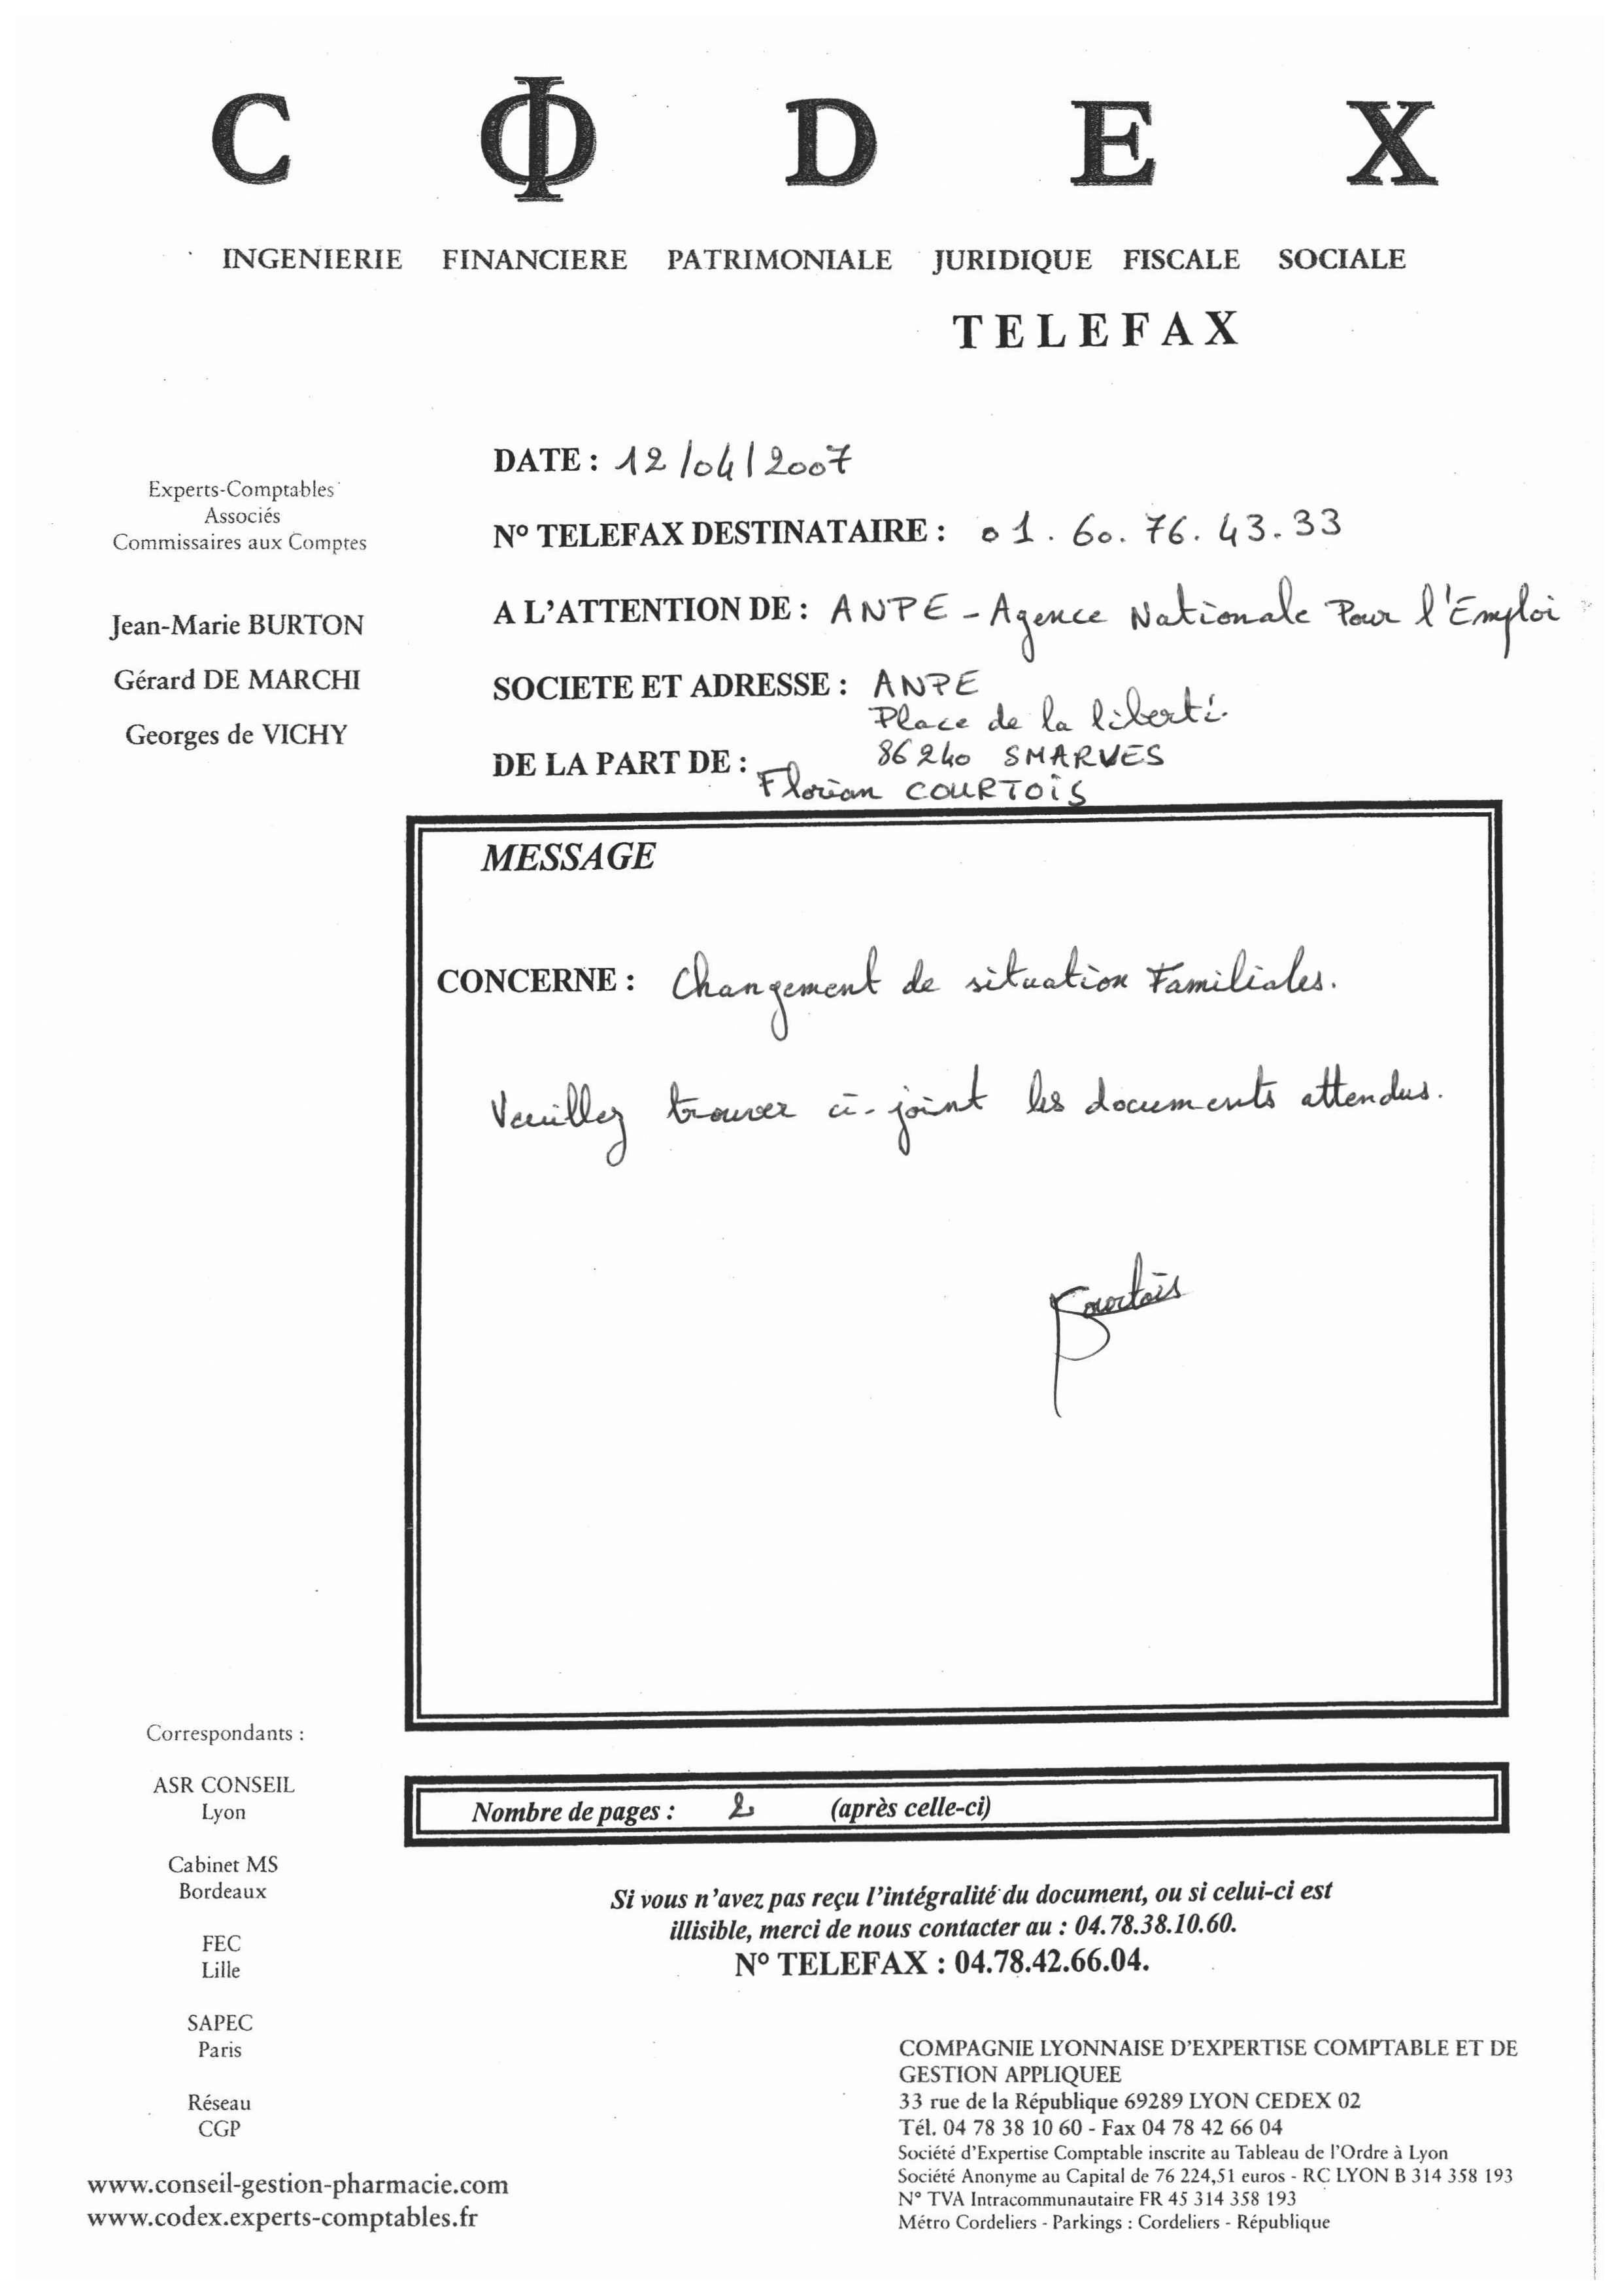 CΦDEX
INGENIERIE FINANCIERE PATRIMONIALE JURIDIQUE FISCALE SOCIALE
TELEFAX
Experts-Comptables
Associés
Commissaires aux Comptes
Jean-Marie BURTON
Gérard DE MARCHI
Georges de VICHY
DATE : 12/04/2007
N° TELEFAX DESTINATAIRE : 01.60.76.43.33
A L'ATTENTION DE : ANPE - Agence Nationale Pour l'Emploi
SOCIETE ET ADRESSE : ANPE
Place de la liberté.
86240 SMARVES
DE LA PART DE : Florian COURTOIS
MESSAGE
CONCERNE : Changement de situation Familiales.
Veuillez trouver ci-joint les documents attendus.
Courtois
Nombre de pages : 2 (après celle-ci)
Si vous n'avez pas reçu l'intégralité du document, ou si celui-ci est
illisible, merci de nous contacter au : 04.78.38.10.60.
N° TELEFAX : 04.78.42.66.04.
Correspondants :
ASR CONSEIL
Lyon
Cabinet MS
Bordeaux
FEC
Lille
SAPEC
Paris
Réseau
CGP
www.conseil-gestion-pharmacie.com
www.codex.experts-comptables.fr
COMPAGNIE LYONNAISE D'EXPERTISE COMPTABLE ET DE
GESTION APPLIQUEE
33 rue de la République 69289 LYON CEDEX 02
Tél. 04 78 38 10 60 - Fax 04 78 42 66 04
Société d'Expertise Comptable inscrite au Tableau de l'Ordre à Lyon
Société Anonyme au Capital de 76 224,51 euros - RC LYON B 314 358 193
N° TVA Intracommunautaire FR 45 314 358 193
Métro Cordeliers - Parkings : Cordeliers - République